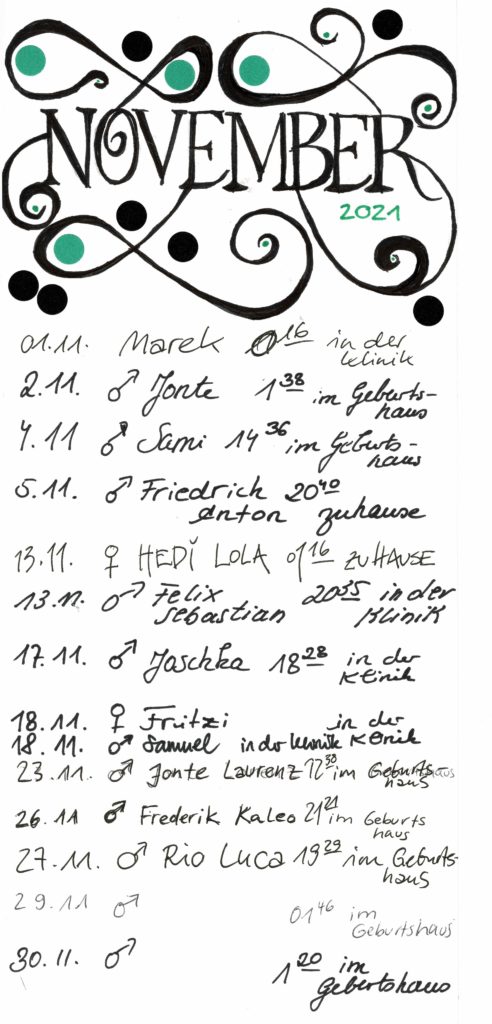 NOVEMBER
2021
01.11. Marek 0 16 in der
Klinik
2.11. ♂ Jonte 1 38 im Geburts-
haus
4.11 ♂ Sami 14 36 im Geburts-
haus
5.11. ♂ Friedrich 20 40
Anton zuhause
13.11. ♀ HEDI LOLA 01 16 ZUHAUSE
13.11. ♂ Felix 20 35 in der
Sebastian Klinik
17.11. ♂ Jaschka 18 28 in der
Klinik
18.11. ♀ Fritzi in der
18.11. ♂ Samuel in der Klinik Klinik
23.11. ♂ Jonte Laurenz 12 30 im Geburts-
haus
26.11 ♂ Frederik Kaleo 21 21 im Geburts
haus
27.11. ♂ Rio Luca 19 29 im Geburts-
haus
29.11 ♂ 01 46 im
Geburtshaus
30.11. ♂ 1 20 im
Gebertshaus